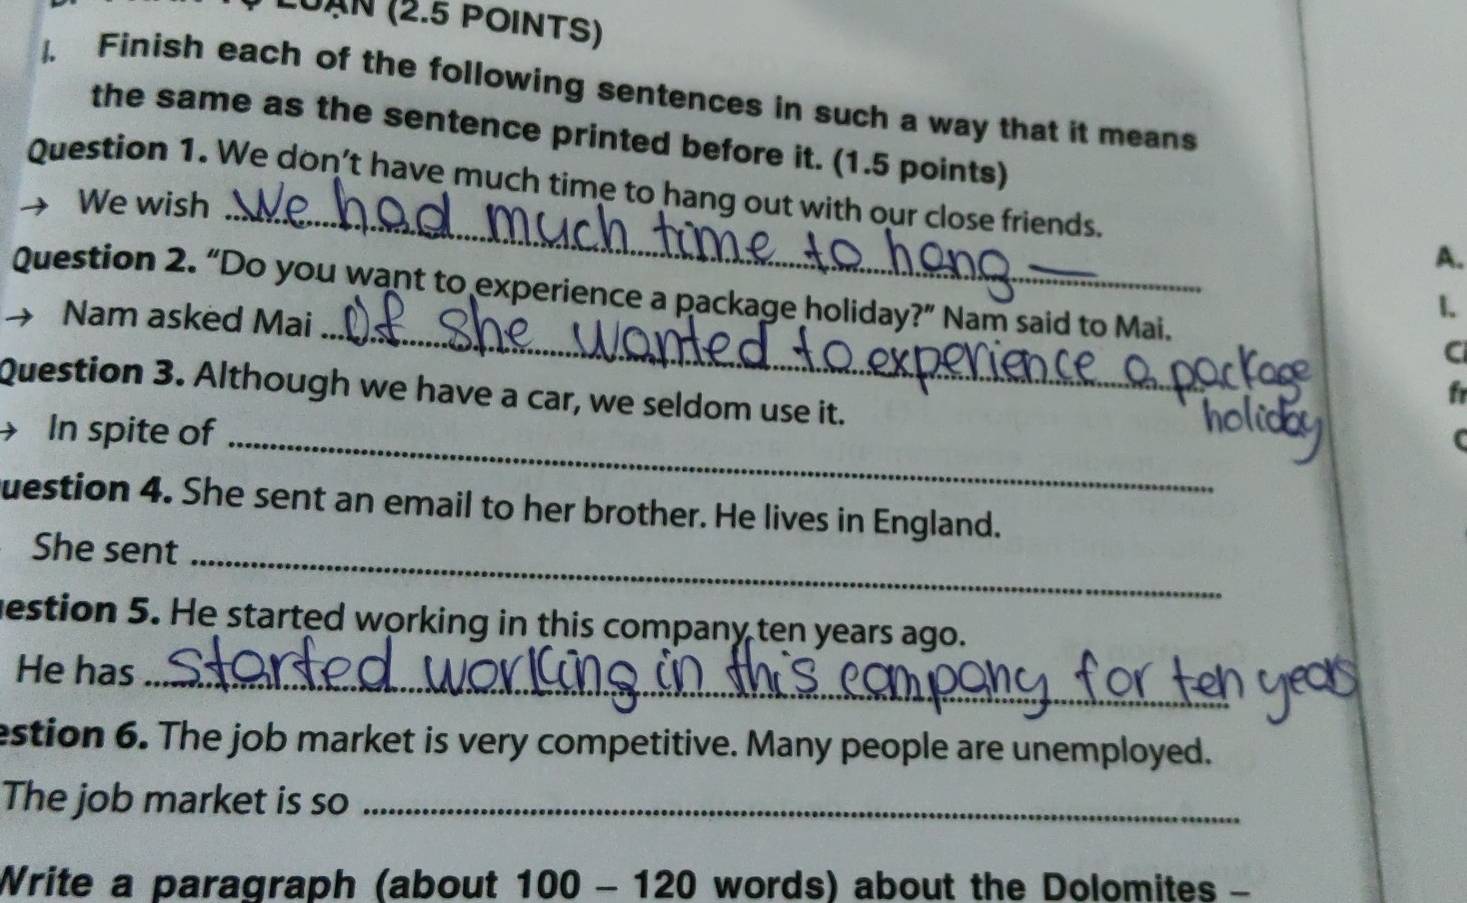 LUẬN (2.5 POINTS)
I. Finish each of the following sentences in such a way that it means
the same as the sentence printed before it. (1.5 points)
Question 1. We don't have much time to hang out with our close friends.
→ We wish We had much time to hang —
Question 2. "Do you want to experience a package holiday?" Nam said to Mai.
→ Nam asked Mai if she wanted to experience a package
holiday
Question 3. Although we have a car, we seldom use it.
→ In spite of
uestion 4. She sent an email to her brother. He lives in England.
She sent
estion 5. He started working in this company ten years ago.
He has started working in this company for ten years
estion 6. The job market is very competitive. Many people are unemployed.
The job market is so
Write a paragraph (about 100 – 120 words) about the Dolomites –
A.
I.